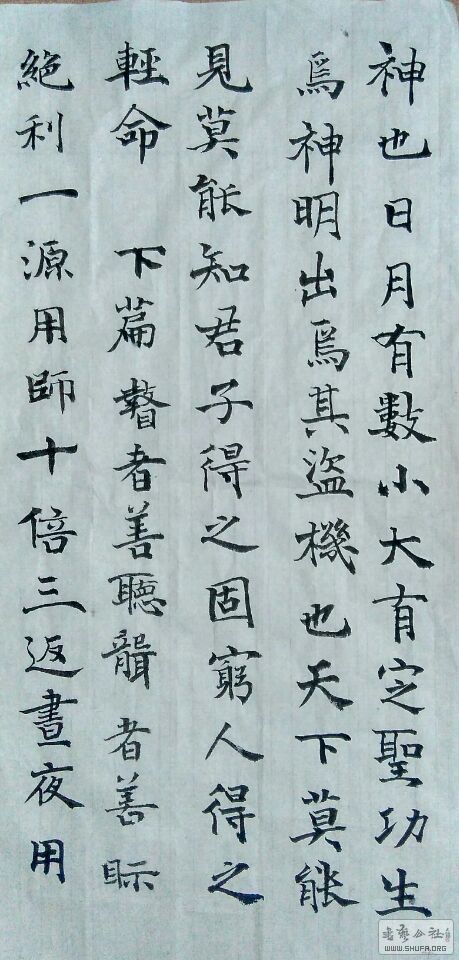 神也日月有數小大有定聖功生
焉神明出焉其盜機也天下莫能
見莫能知君子得之固窮人得之
輕命 下篇瞽者善聽聾者善眎
絕利一源用師十倍三返晝夜用
书法公社
WWW.SHUFA.ORG